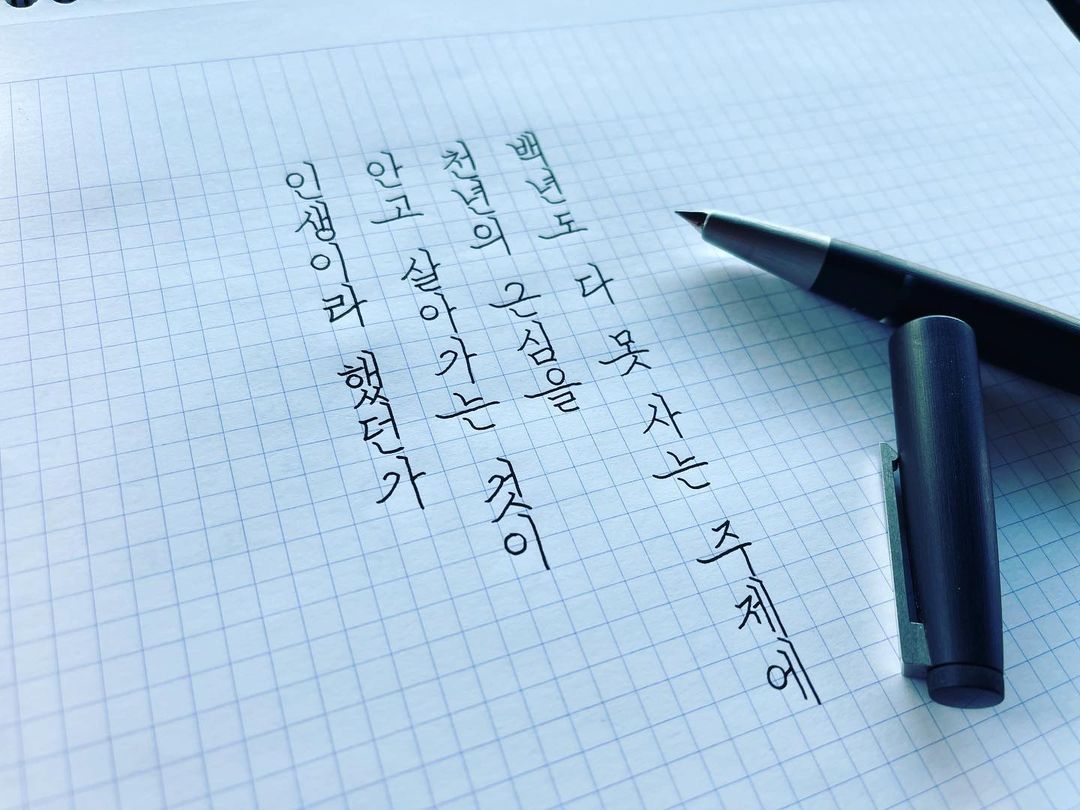 백년도 다 못 사는 주제에
천년의 근심을
안고 살아가는 것이
인생이라 했던가